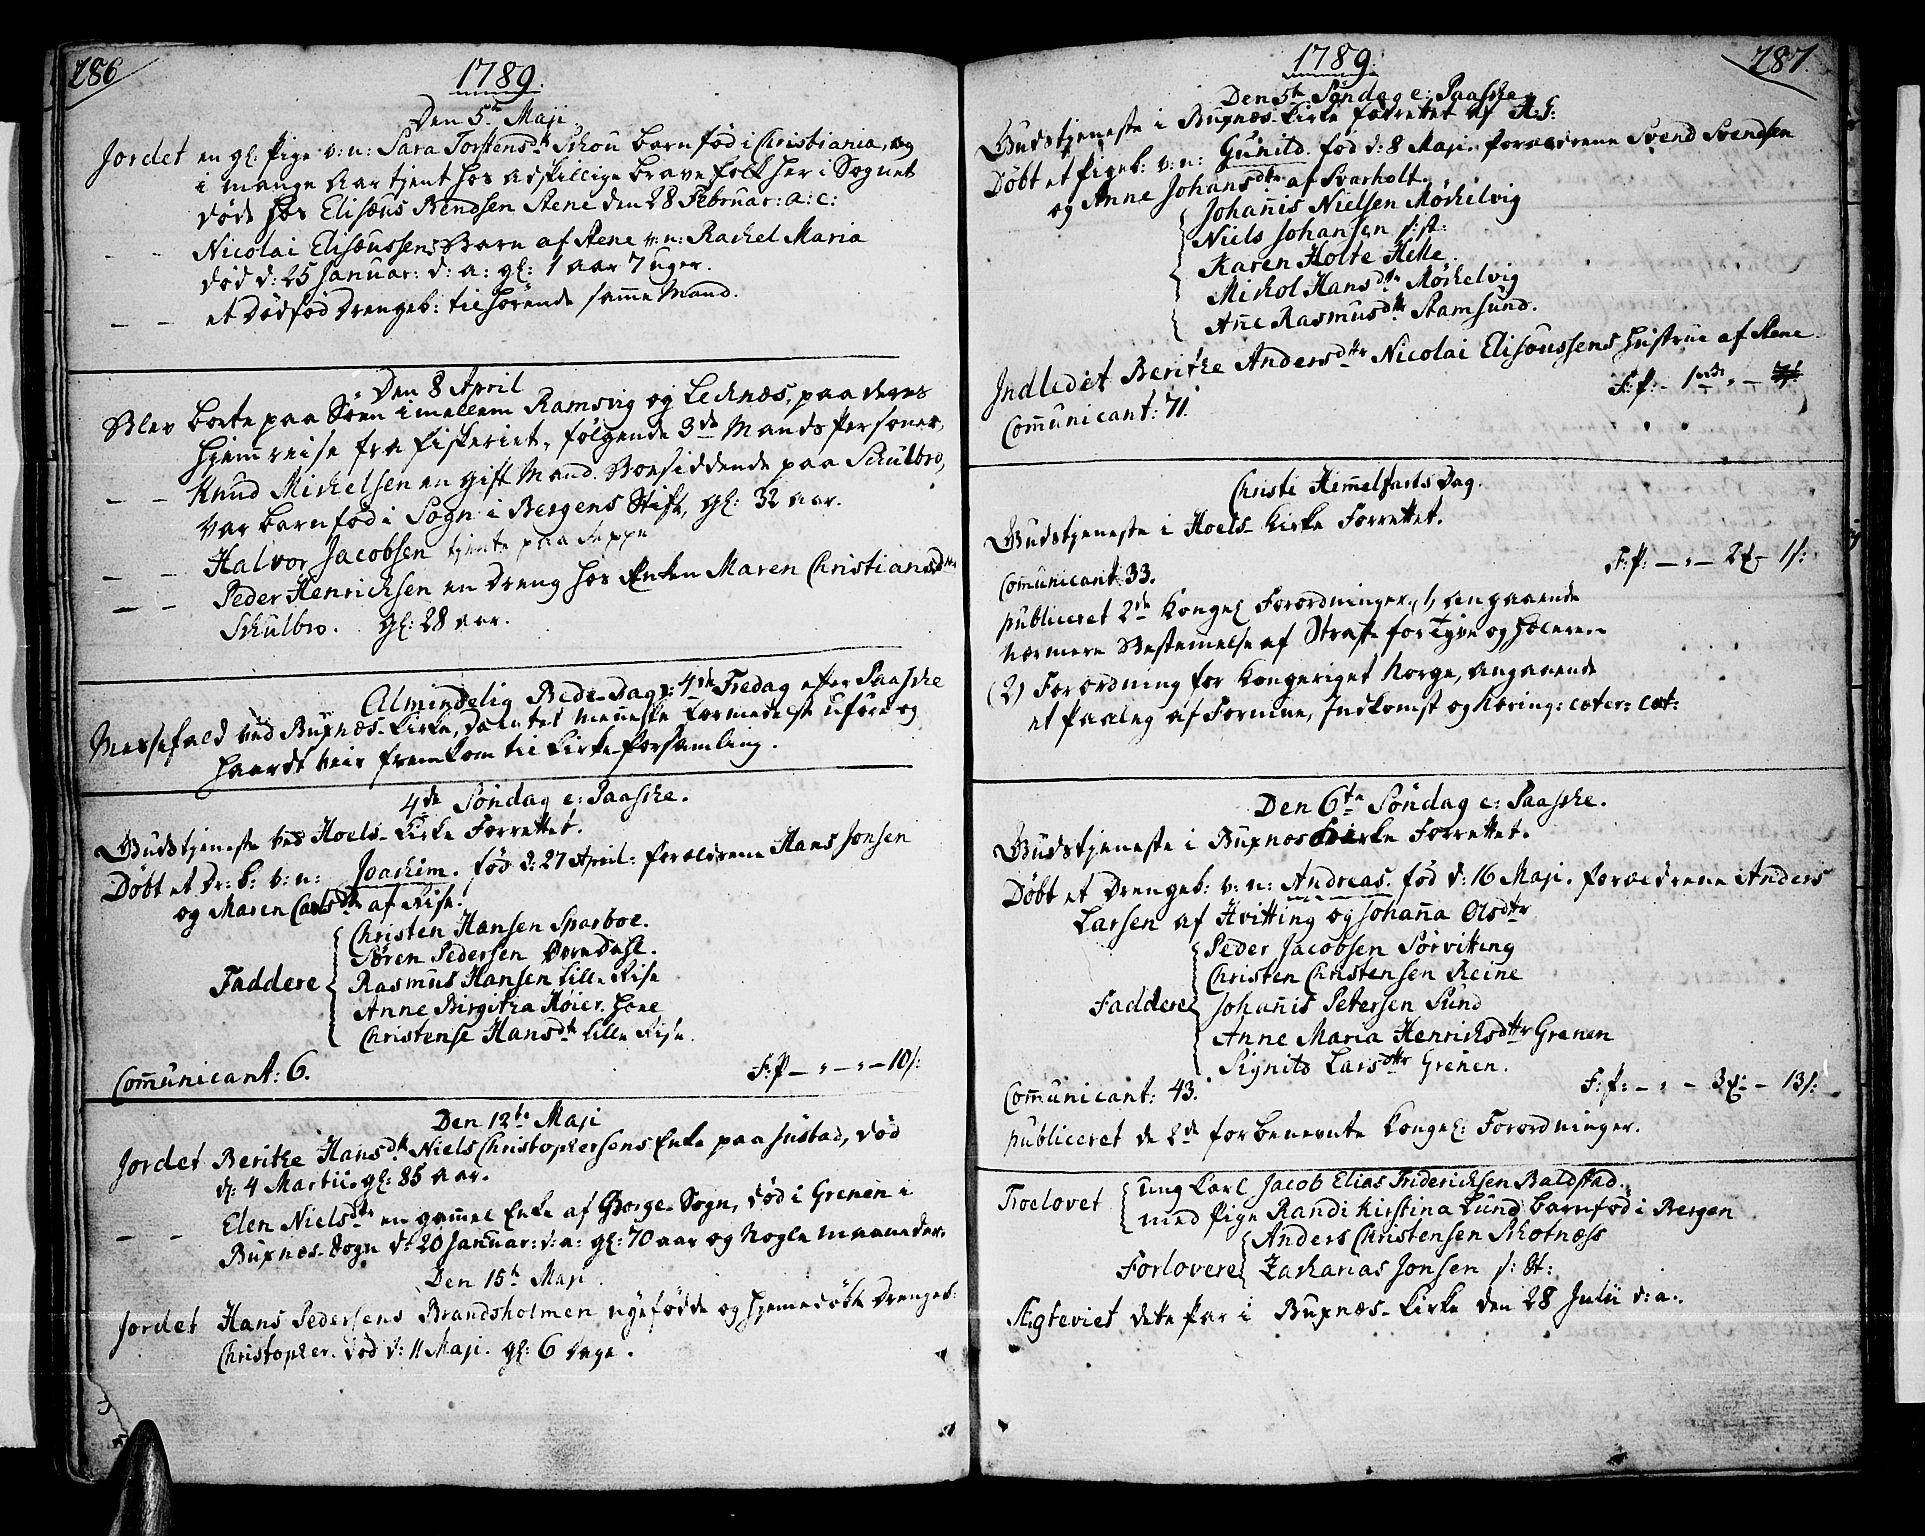 286
1789.
Den 5te Maji
Jordet en gl: Pige v: n: Sara Torstensdtr Schou barnfød i Christiania, og
i mange Aar tjent hos adskillige brave folk her i Sognet
døde hos Elisæus Bendsen Stene den 28 Februar: a: c:
- - Nicolai Elisæussens Barn af Stene v: n: Rachel Maria
død d: 25 Januar: d: a: gl: 1 aar 7 uger.
- - et dødfød Drengeb: tilhørende samme Mand.
Den 8 April
Blev borte paa Søen imellem Ramsvig og Lecknæs, paa deres
hjemreise fra fiskeriet, følgende 3de Mands Personer,
- - Knud Michelsen en gift Mand. Boesiddende paa Schulbro,
var barnfød i Sogn i Bergens Stift, gl: 32 aar.
- - Halvor Jacobsen tjente paa Steppe
- - Peder Henrichsen en Dreng hos Enken Maren Christiansdtr
Schulbro. gl: 28 aar.
Almindelig Bede-Dag: 4de Fredag efter Paaske
Messefald ved Buxnæs-Kirke, da intet menneske formedelst uføre og
haardt veir fremkom til Kirke-forsamling.
4de Søndag e: Paaske.
Gudstjeneste ved Hoels-Kirke Forrettet.
Døbt et Dr: b: v: n: Joachim. fød d: 27 April: forældrene Hans Jonsen
og Maren Carlsdtr af Rise.
Christen Hansen Sparboe.
Søren Pedersen Dorndahl.
Faddere Rasmus Hansen Lille Rise
Anne Birgitha Høier. Hone
Christense Hansdtr Lille Rise.
Communicant: 6.
F: P - " - " - 10 s:
Den 12te Maji
Jordet Berithe Hansdtr Niels Christophersens Enke paa Justad, død
d: 4 Martii. gl: 85 aar.
- - Elen Nielsdtr en gammel Enke af Borge-Sogn, død i Grenen i
Buxnæs-Sogn d: 20 Januar: d: a: gl: 70 aar og nogle maaneder.
Den 15te Maji
Jordet Hans Pedersens Brandsholmen nyefødde og hjemedøbte Drengeb:
Christopher. død d: 11 Maji. gl: 6 dage.
287.
1789.
Den 5te Søndag e: Paaske
Gudstjeneste i Buxnæs-Kirke forrettet af H: H:
Døbt et Pigeb: v: n: Gunild. fød d: 8 Maji. forældrene Svend Svendsen
og Anne Johansdtr af Svarholt.
Johannis Nielsen Mørchelvig
Niels Johansen s: st:
Karen Holte Helle
Michol Hansdtr Mørchelvig
Anne Rasmusdtr Stamsund.
Indledet Berithe Andersdtr Nicolai Elisæussens hustrue af Stene
F: P: - 1 -
Communicant: 71.
Christi Himmelfarts Dag.
Gudstjeneste i Hoels-Kirke Forrettet.
F: P: - " - 2 - 1 s:
Communicant: 33.
publiceret 2de Kongel Forordninger, 1, angaaende
nærmere Bestemmelse af Straffe for Tyve og hælere.
(2) Forordning for Kongeriget Norge, angaaende
et Paalæg af Formue, Indkomst og Næring: cæter: cæt:
Den 6te Søndag e: Paaske.
Gudstjeneste i Buxnæs Kirke Forrettet.
Døbt et Drengeb: v: n: Andreas. fød d: 16 Maji. forældrene Anders
Larsen af Hvitting og Johanna Olsdtr
Peder Jacobsen Sørvitting
Christen Christensen Reine
Faddere Johannis Petersen Sund
Anne Maria Henrichsdtr Grenen
Signild Larsdtr Grenen.
F: P: - " - 3 - 13 s:
Communicant: 43.
publiceret de 2de forbenevnte Kongel: Forordninger.
Troelovet ung Karl Jacob Elias Friderichsen Baldstad.
med Pige Randi Kirstina Lund barnfød i Bergen
Anders Christensen Schotnæss
Forlovere Zacharias Jonsen s: St:
Ægteviet dette Par i Buxnæs-Kirke den 28 Julii d: a: